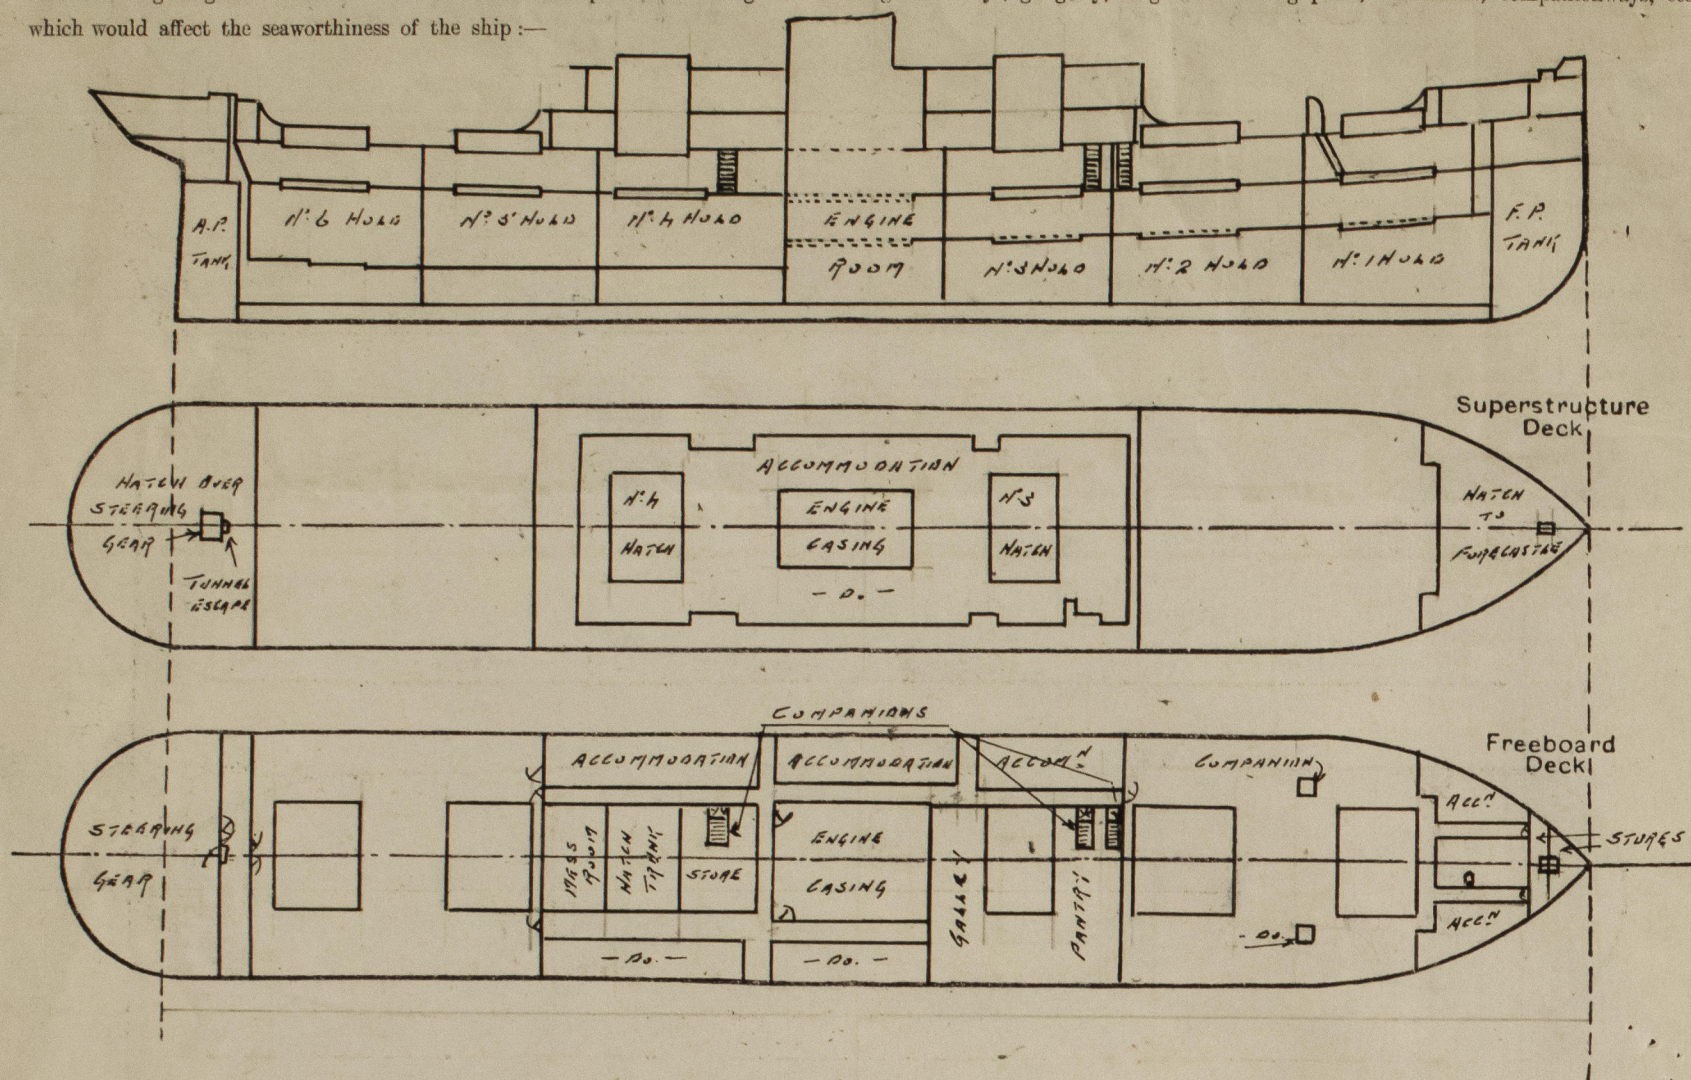 which would affect the seaworthiness of the ship :—
A.P.
TANK
Nº 6 HOLD
Nº 5 HOLD
Nº 4 HOLD
ENGINE
ROOM
Nº 3 HOLD
Nº 2 HOLD
Nº 1 HOLD
F.P.
TANK
Superstructure
Deck
HATCH OVER
STEERING
GEAR
TUNNEL
ESCAPE
ACCOMMODATION
Nº 4
HATCH
ENGINE
CASING
Nº 3
HATCH
- Do. -
HATCH
TO
FORECASTLE
COMPANIONS
Freeboard
Deck
ACCOMMODATION
ACCOMMODATION
ACCOMᴺ
COMPANION
STEERING
GEAR
MESS
ROOM
HATCH
TRUNK
STORE
ENGINE
CASING
GALLEY
PANTRY
ACCᴺ
STORES
ACCᴺ
- Do. -
- Do. -
- Do. -